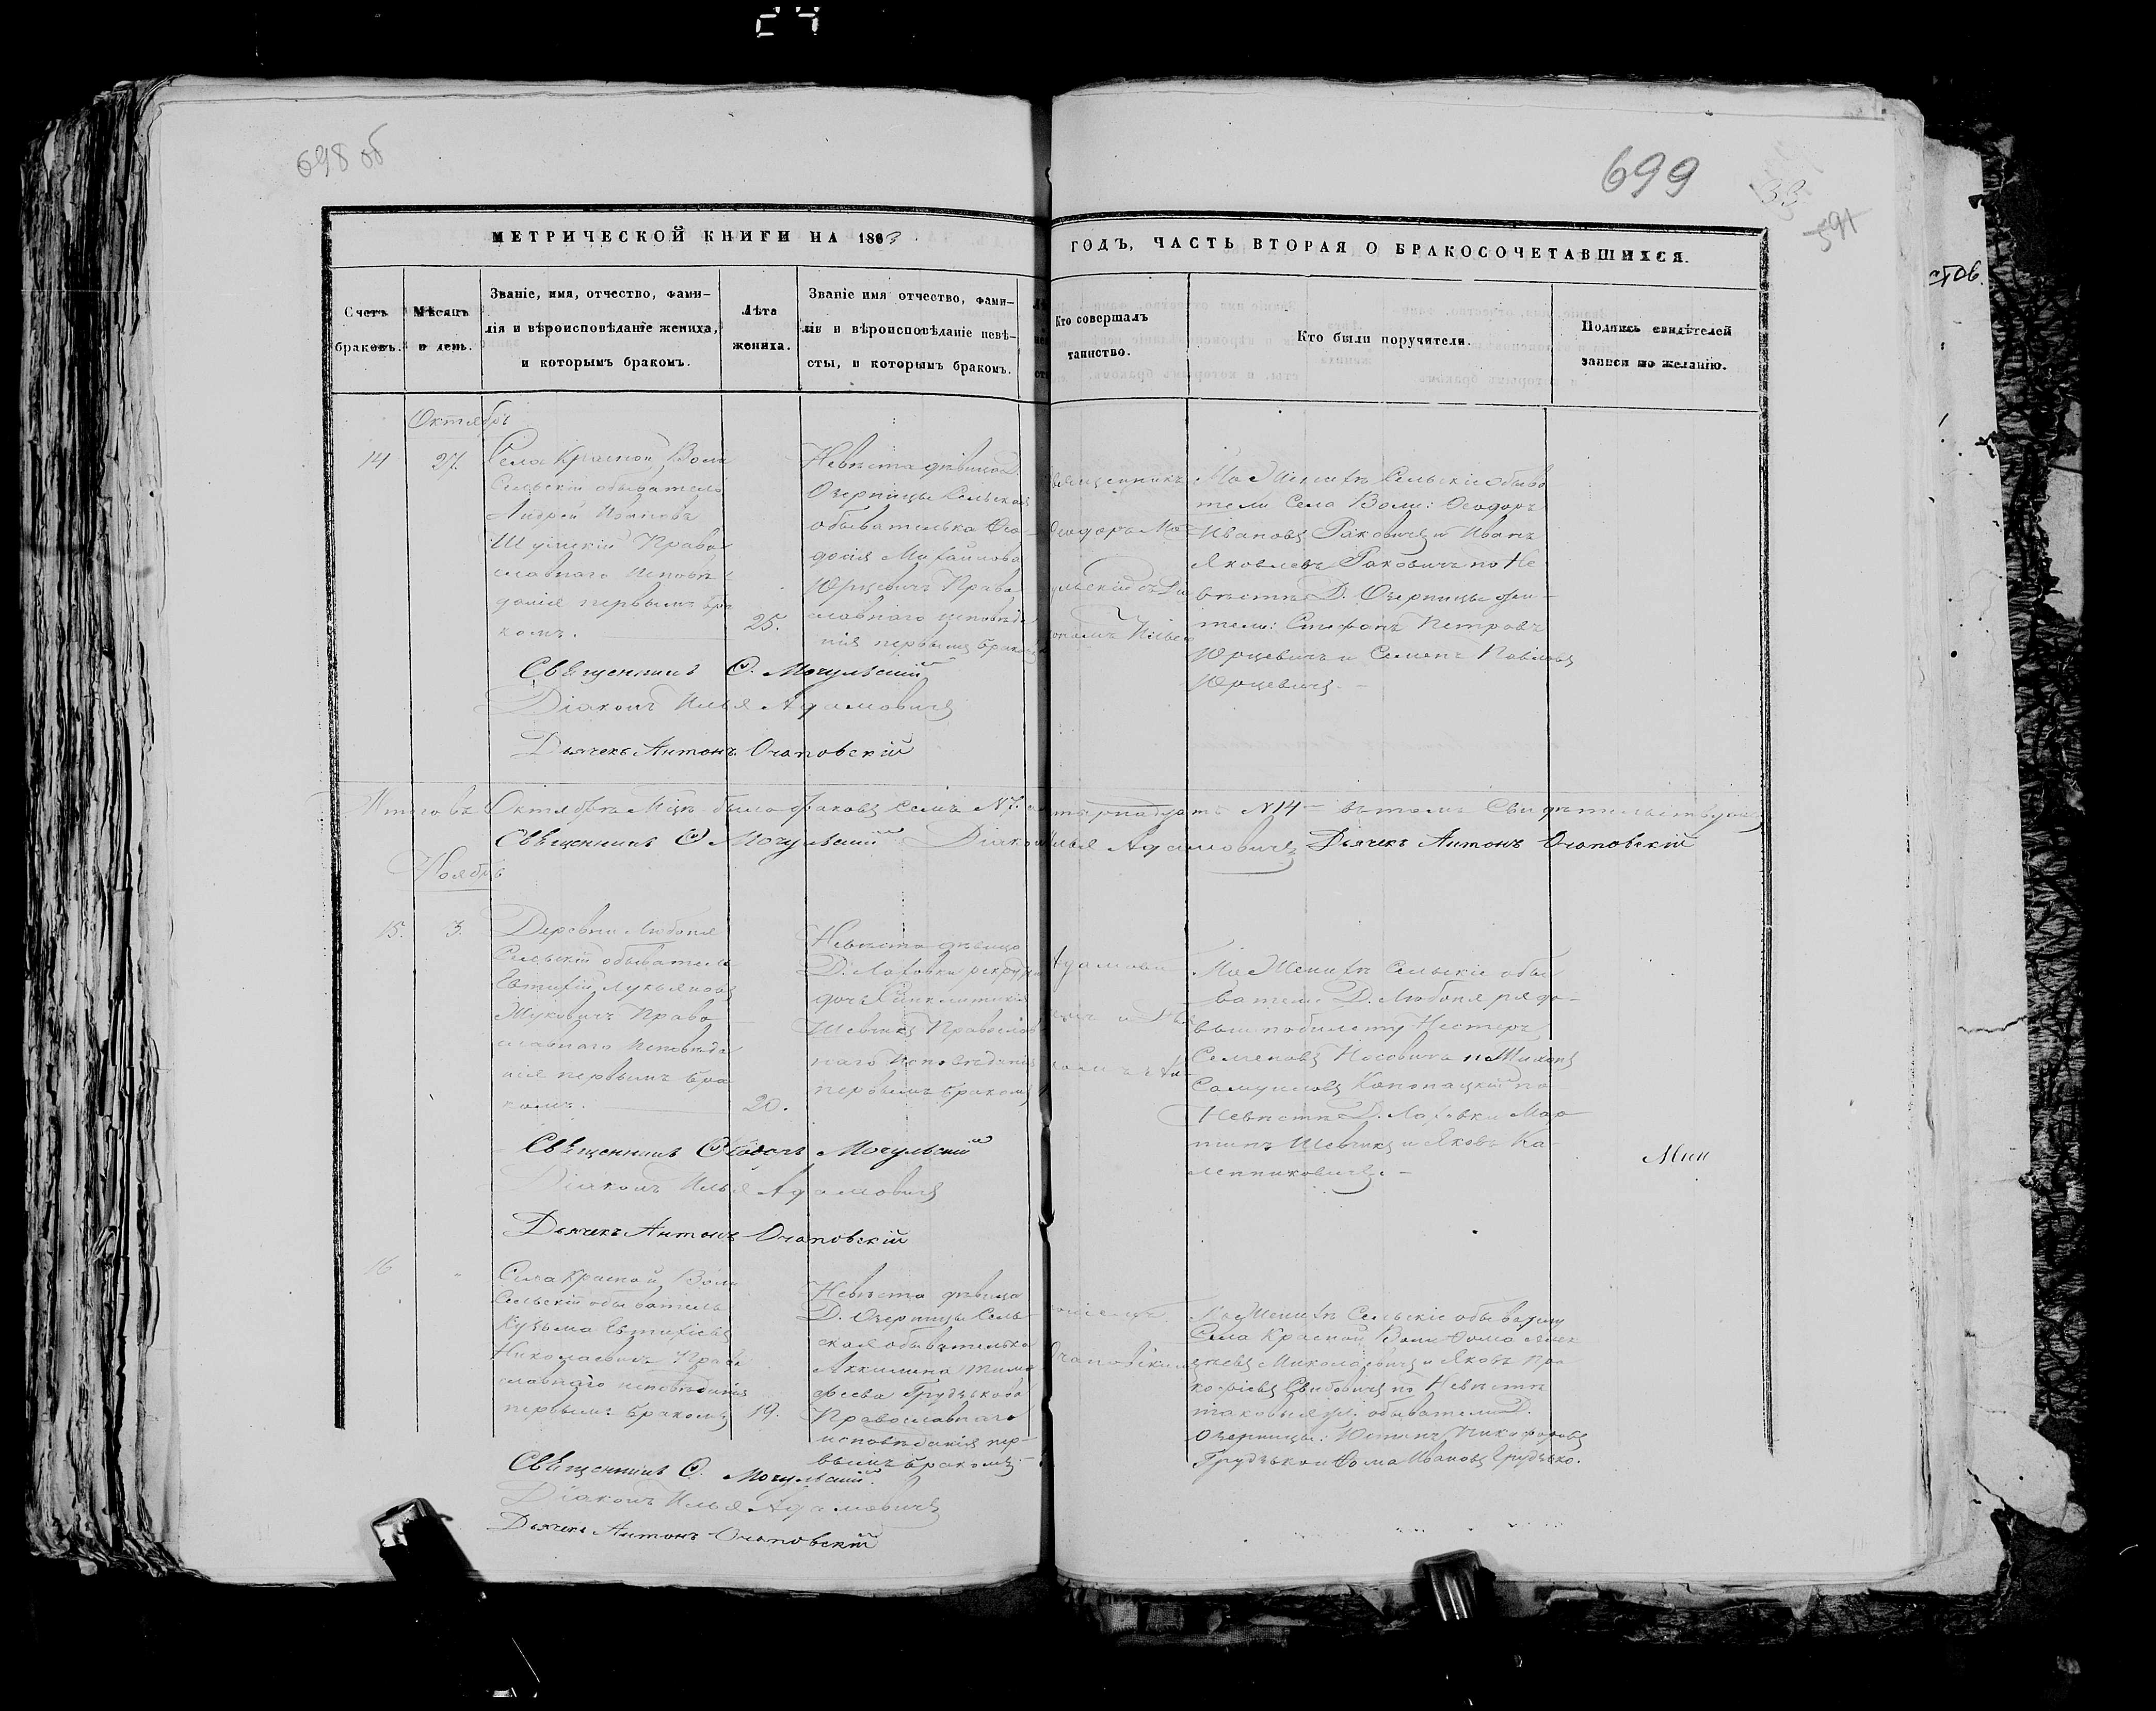 698 об
699
33
591
МЕТРИЧЕСКОЙ КНИГИ НА 1863
ГОДЪ, ЧАСТЬ ВТОРАЯ О БРАКОСОЧЕТАВШИХСЯ.
Счетъ браковъ.
Мѣсяцъ и день.
Званіе, имя, отчество, фами-
лія и вѣроисповѣданіе жениха,
и которымъ бракомъ.
Лѣта
жениха.
Званіе имя отчество, фами-
лія и вѣроисповѣданіе невѣ-
сты, и которымъ бракомъ.
Кто совершалъ
таинство.
Кто были поручители.
Подпись свидѣтелей
записи по желанію.
Октябрь
14
27.
Села Красной Воли
Сельскій обыватель
Андрей Ивановъ
Шуцкій Право
славнаго исповѣ
данія первымъ бра
комъ.
25.
Невѣста дѣвица Д.
Озерницы Сельская
обывателька Ѳео-
докія Михайлова
Юрцевичъ Право
славнаго исповѣда
нія первымъ бракомъ
Ѳеодоръ Мо
По Женихѣ Сельскіе обыва
тели Села Воли: Ѳеодоръ
Ивановъ Раковичъ и Иванъ
Яковлевъ Раковичъ по Не
вѣстѣ Д. Озерницы жи-
тели: Стефанъ Петровъ
Юрцевичъ и Семенъ Павловъ
Юрцевичъ.
Священникъ Ѳ. Мочульскій
Діаконъ Илья Адамовичъ
Дьячекъ Антонъ Очаповскій
Итого въ Октябрѣ М-цѣ было браковъ семь №7.
№14 въ томъ Свидѣтельствуемъ
Священникъ Ѳ Мочульскій Діаконъ Илья Адамовичъ Дьячекъ Антонъ Очаповскій
Ноябрь
15.
3.
Деревни Любоня
Сельскій обыватель
Евтихій Лукьяновъ
Жуковичъ Право
славнаго Исповѣда
нія первымъ бра
комъ.
20.
Невѣста дѣвица
Д. Лаховки
дочь
Шевчикъ Православ
наго Исповѣданія
первымъ бракомъ
По Женихѣ Сельскіе обы
ватели Д. Любоня рядо-
вый по билету Несторъ
Семеновъ Носовичъ и
Самуиловъ Канопацкій по
Невѣстѣ Д. Лаховки Мар
тинъ Шевчикъ и Яковъ Ка-
ленниковичъ.
Священникъ Ѳеодоръ Мочульскій
Діаконъ Илья Адамовичъ
Дьячекъ Антонъ Очаповскій
16
Села Красной Воли
Сельскій обыватель
Кузьма Евтихіевъ
Николаевичъ Право
славнаго исповѣданія
первымъ бракомъ
19.
Невѣста дѣвица
Д. Озерницы Сель
ская обывателька
Аккилина Тимо
феева Грудзькова
Православнаго
исповѣданія пер-
вымъ бракомъ.
По Женихѣ Сельскіе обыватели
Села Красной Воли Ѳома
Миколаевичъ и Яковъ Про
кофіевъ по Невѣстѣ
таковые же обыватели Д.
Озерницы: Никифоровъ
Грудзько и Ѳома Ивановъ Грудзько.
Священникъ Ѳ. Мочульскій
Діаконъ Илья Адамовичъ
Дьячекъ Антонъ Очаповскій